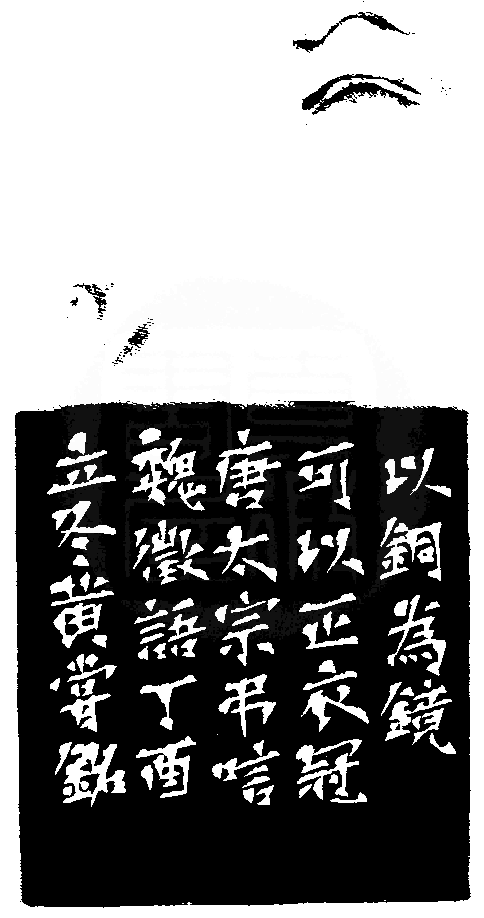 以銅為鏡
可以正衣冠
唐太宗弔唁
魏徵語丁酉
立冬黄嘗銘